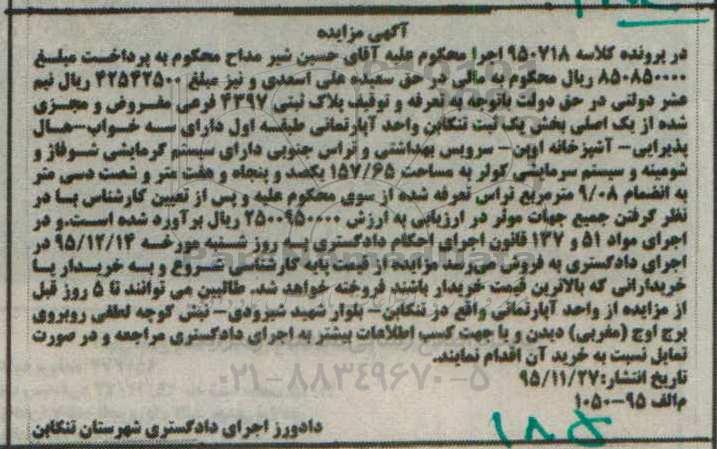 آگهی مزایده
در پرونده کلاسه ۹۵۰۷۱۸ اجرا محکوم علیه آقای حسین شیر مداح محکوم به پرداخت مبلغ
۸۵۰۸۵۰۰۰۰ ریال محکوم به مالی در حق سعیده علی اسعدی و نیز مبلغ ۴۲۵۴۲۵۰۰ ریال نیم
عشر دولتی در حق دولت باتوجه به تعرفه و توقیف پلاک ثبتی ۴۳۹۷ فرعی مفروض و مجزی
شده از یک اصلی بخش یک ثبت تنکابن واحد آپارتمانی طبقه اول دارای سه خواب-هال
پذیرایی- آشپزخانه اوپن- سرویس بهداشتی و تراس جنوبی دارای سیستم گرمایشی شوفاژ و
شومینه و سیستم سرمایشی کولر به مساحت ۱۵۷/۶۵ یکصد و پنجاه و هفت متر و شصت دسی متر
به انضمام ۹/۰۸ مترمربع تراس تعرفه شده از سوی محکوم علیه و پس از تعیین کارشناس با در
نظر گرفتن جمیع جهات موثر در ارزیابی به ارزش ۲۵۰۰۹۵۰۰۰۰ ریال برآورد شده است.و در
اجرای مواد ۵۱ و ۱۳۷ قانون اجرای احکام دادگستری به روز شنبه مورخه ۹۵/۱۲/۱۴ در
اجرای دادگستری به فروش می‌رسد مزایده از قیمت پایه کارشناسی شروع و به خریدار یا
خریدارانی که بالاترین قیمت خریدار باشند فروخته خواهد شد. طالبین می توانند تا ۵ روز قبل
از مزایده از واحد آپارتمانی واقع در تنکابن- بلوار شهید شیرودی- نبش کوچه لطفی روبروی
برج اوج (مغربی) دیدن و یا جهت کسب اطلاعات بیشتر به اجرای دادگستری مراجعه و در صورت
تمایل نسبت به خرید آن اقدام نمایند.
تاریخ انتشار: ۹۵/۱۱/۲۷
م‌الف ۹۵-۱۰۵۰
۰۲۱-۸۸۳۴۹۶۷۰-۵
دادورز اجرای دادگستری شهرستان تنکابن
۱۸۵